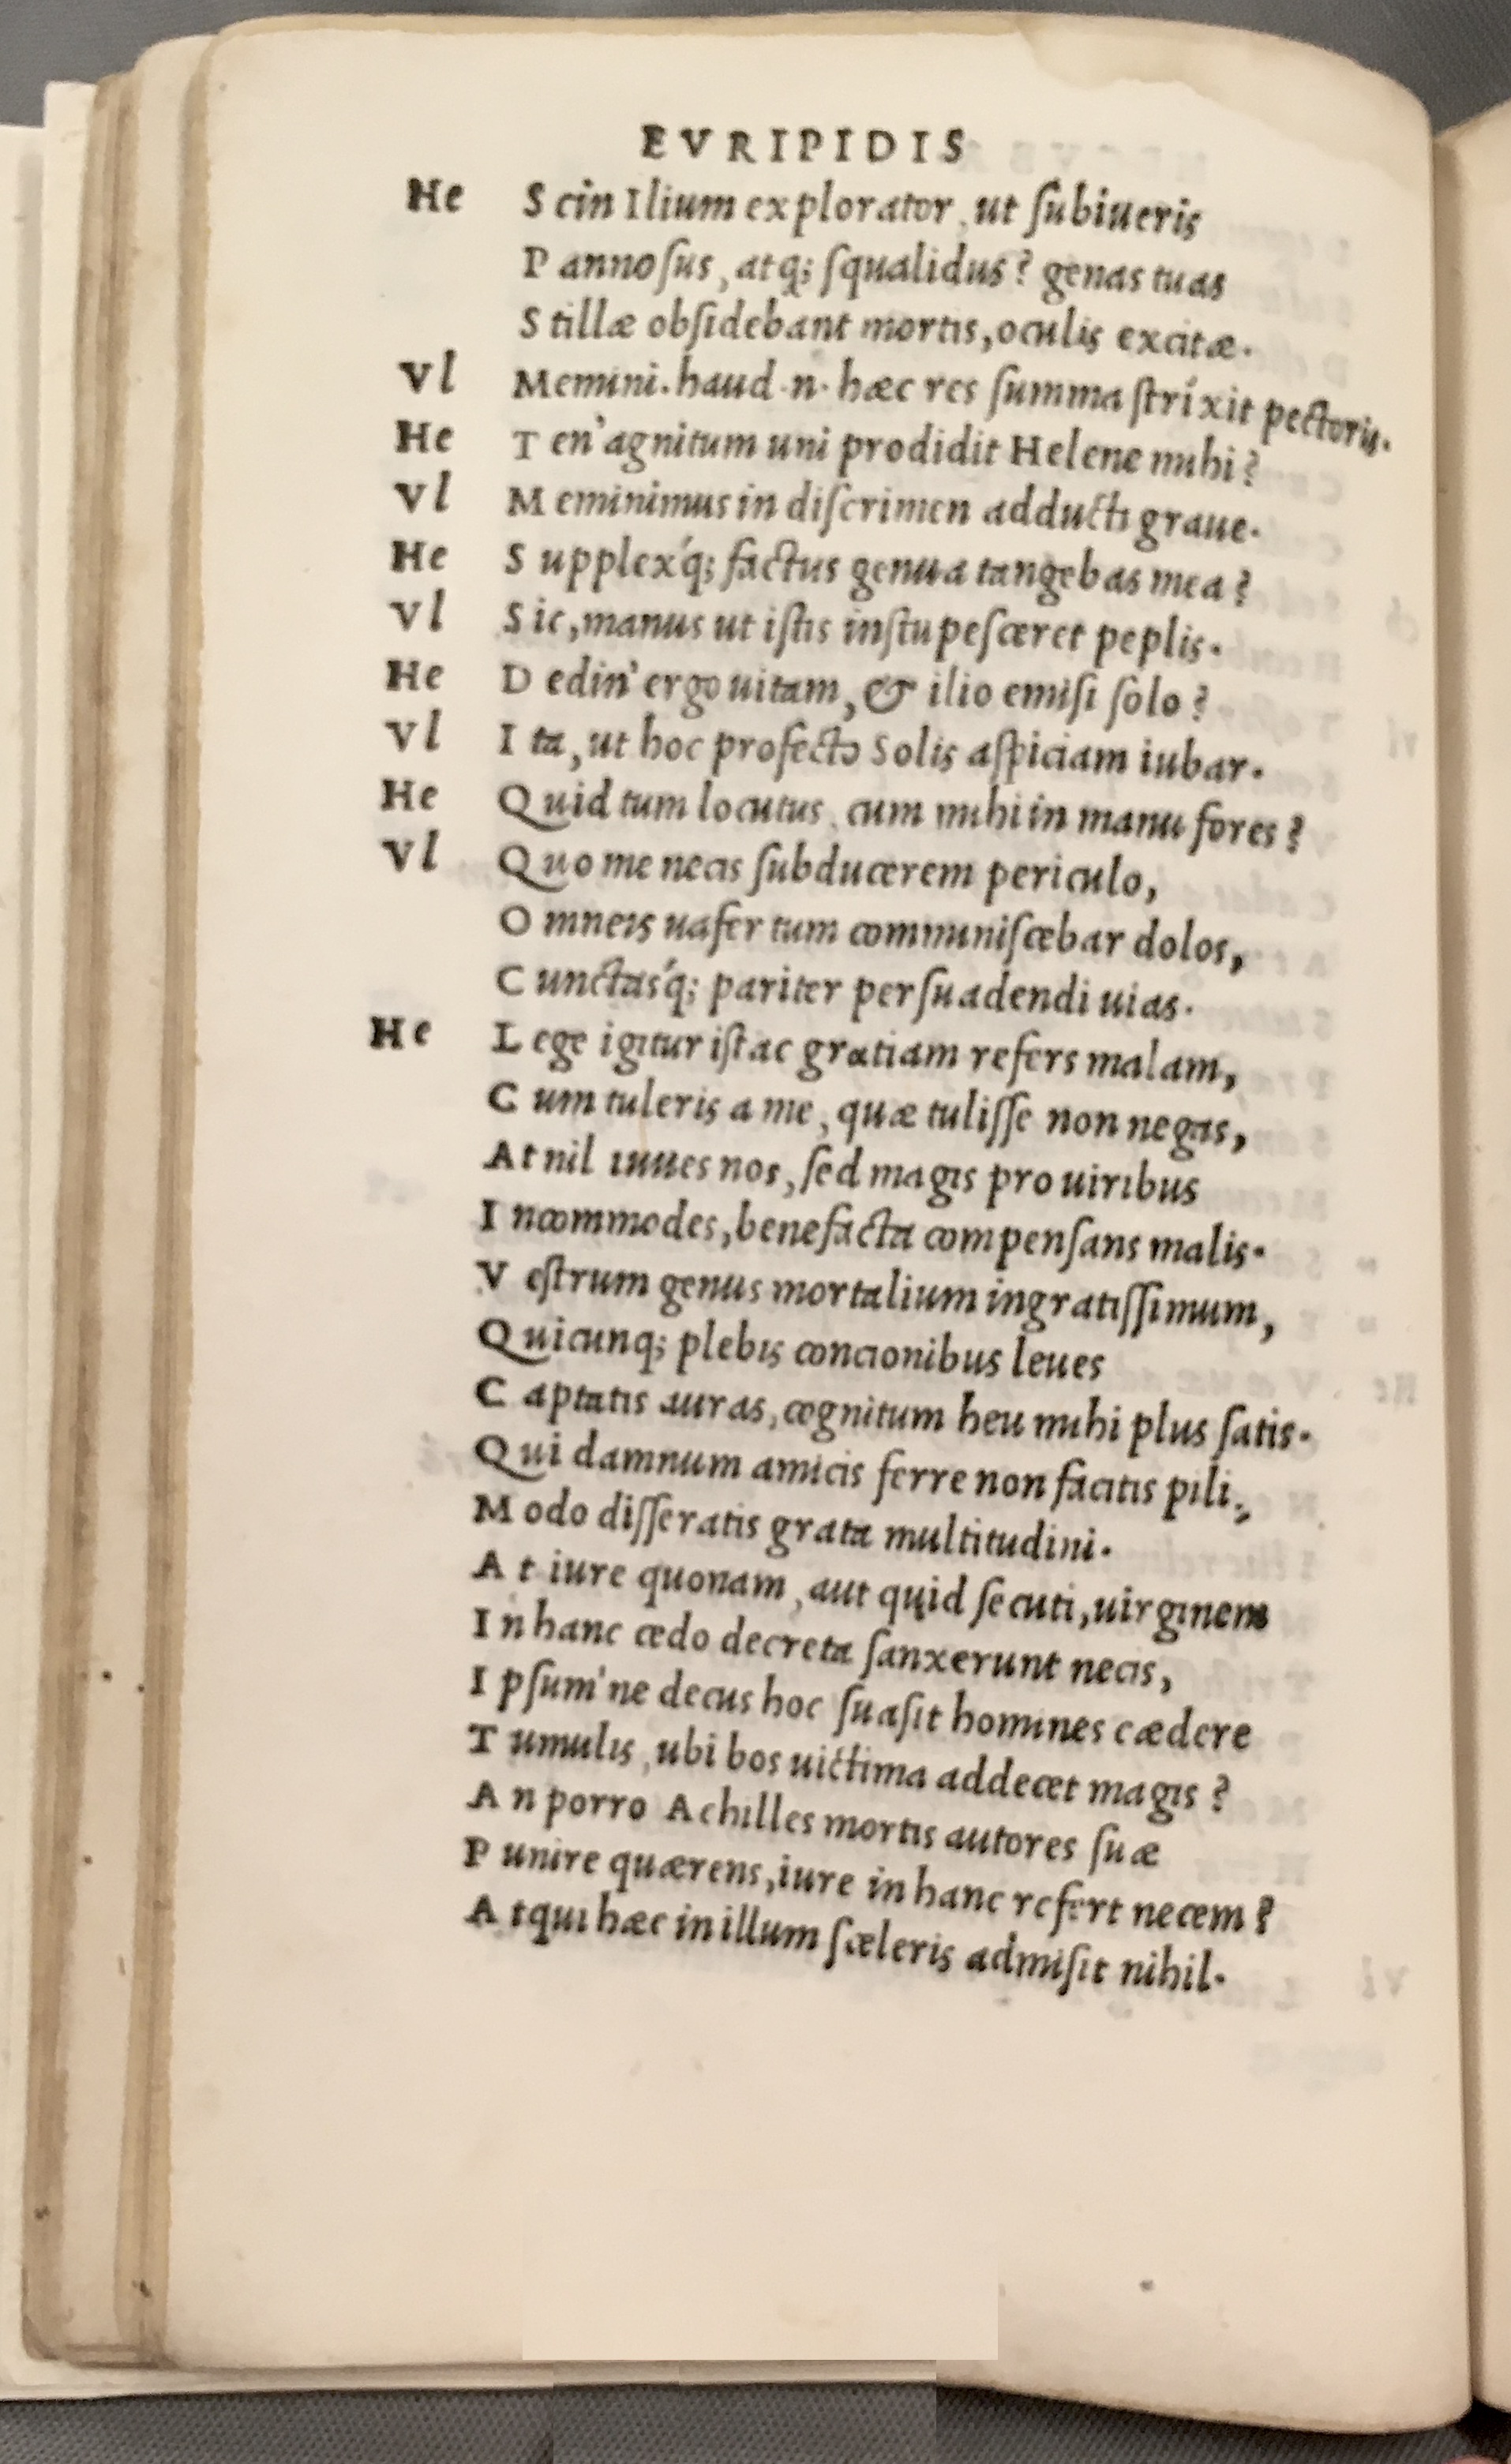 EVRIPIDIS
He Scin Ilium explorator, ut ſubiueris
Pannoſus, atq; ſqualidus? genas tuas
Stillæ obſidebant mortis, oculis excitæ.
Vl Memini. haud .n. hæc res ſumma ſtríxit pectoris.
He Ten' agnitum uni prodidit Helene mihi?
Vl Meminimus in diſcrimen adducti graue.
He Supplex'q; factus genua tangebas mea?
Vl Sic, manus ut iſtis inſtupeſceret peplis.
He Dedin' ergo uitam, & ilio emiſi ſolo?
Vl Ita, ut hoc profecto Solis aſpiciam iubar.
He Quid tum locutus, cum mihi in manu fores?
Vl Quo me necis ſubducerem periculo,
Omneis uafer tum comminiſcebar dolos,
Cunctas'q; pariter perſuadendi uias.
He Lege igitur iſtac gratiam refers malam,
Cum tuleris a me, quæ tuliſſe non negas,
At nil iuues nos, ſed magis pro uiribus
Incommodes, benefacta compenſans malis.
Veſtrum genus mortalium ingratiſſimum,
Quicunq; plebis concionibus leues
Captatis auras, cognitum heu mihi plus ſatis.
Qui damnum amicis ferre non facitis pili,
Modo diſſeratis grata multitudini.
At iure quonam, aut quid ſecuti, uirginem
In hanc cedo decreta ſanxerunt necis,
Ipſum'ne decus hoc ſuaſit homines cædere
Tumulis, ubi bos uictima addecet magis?
An porro Achilles mortis autores ſuæ
Punire quærens, iure in hanc refert necem?
Atqui hæc in illum ſceleris admiſit nihil.